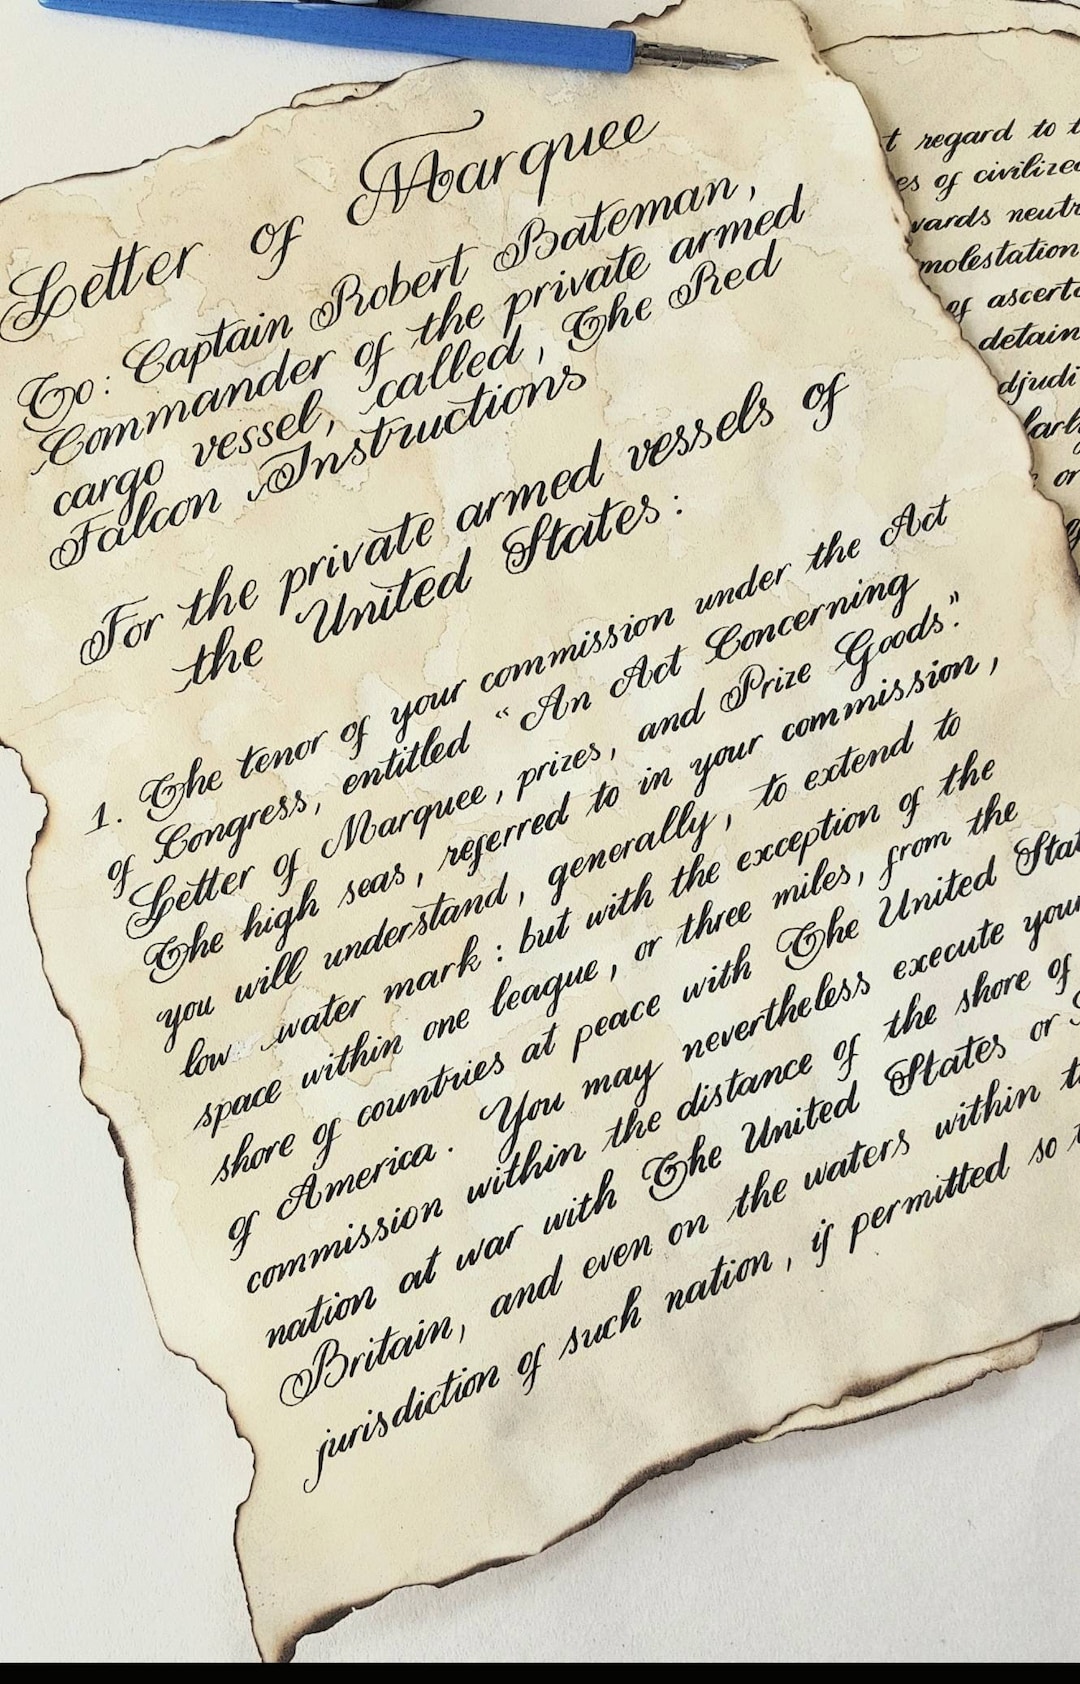 Letter of Marquee
To: Captain Robert Bateman,
Commander of the private armed
cargo vessel, called, The Red
Falcon Instructions
For the private armed vessels of
the United States:
1. The tenor of your commission under the Act
of Congress, entitled "An Act Concerning
Letter of Marquee, prizes, and Prize Goods."
The high seas, referred to in your commission,
you will understand, generally, to extend to
low water mark: but with the exception of the
space within one league, or three miles, from the
shore of countries at peace with The United Stat
of America. You may nevertheless execute your
commission within the distance of the shore of
nation at war with The United States or
Britain, and even on the waters within t
jurisdiction of such nation, if permitted so t
t regard to t
es of civilized
wards neutr
molestation
of ascerta
detain
djudi
larly
or